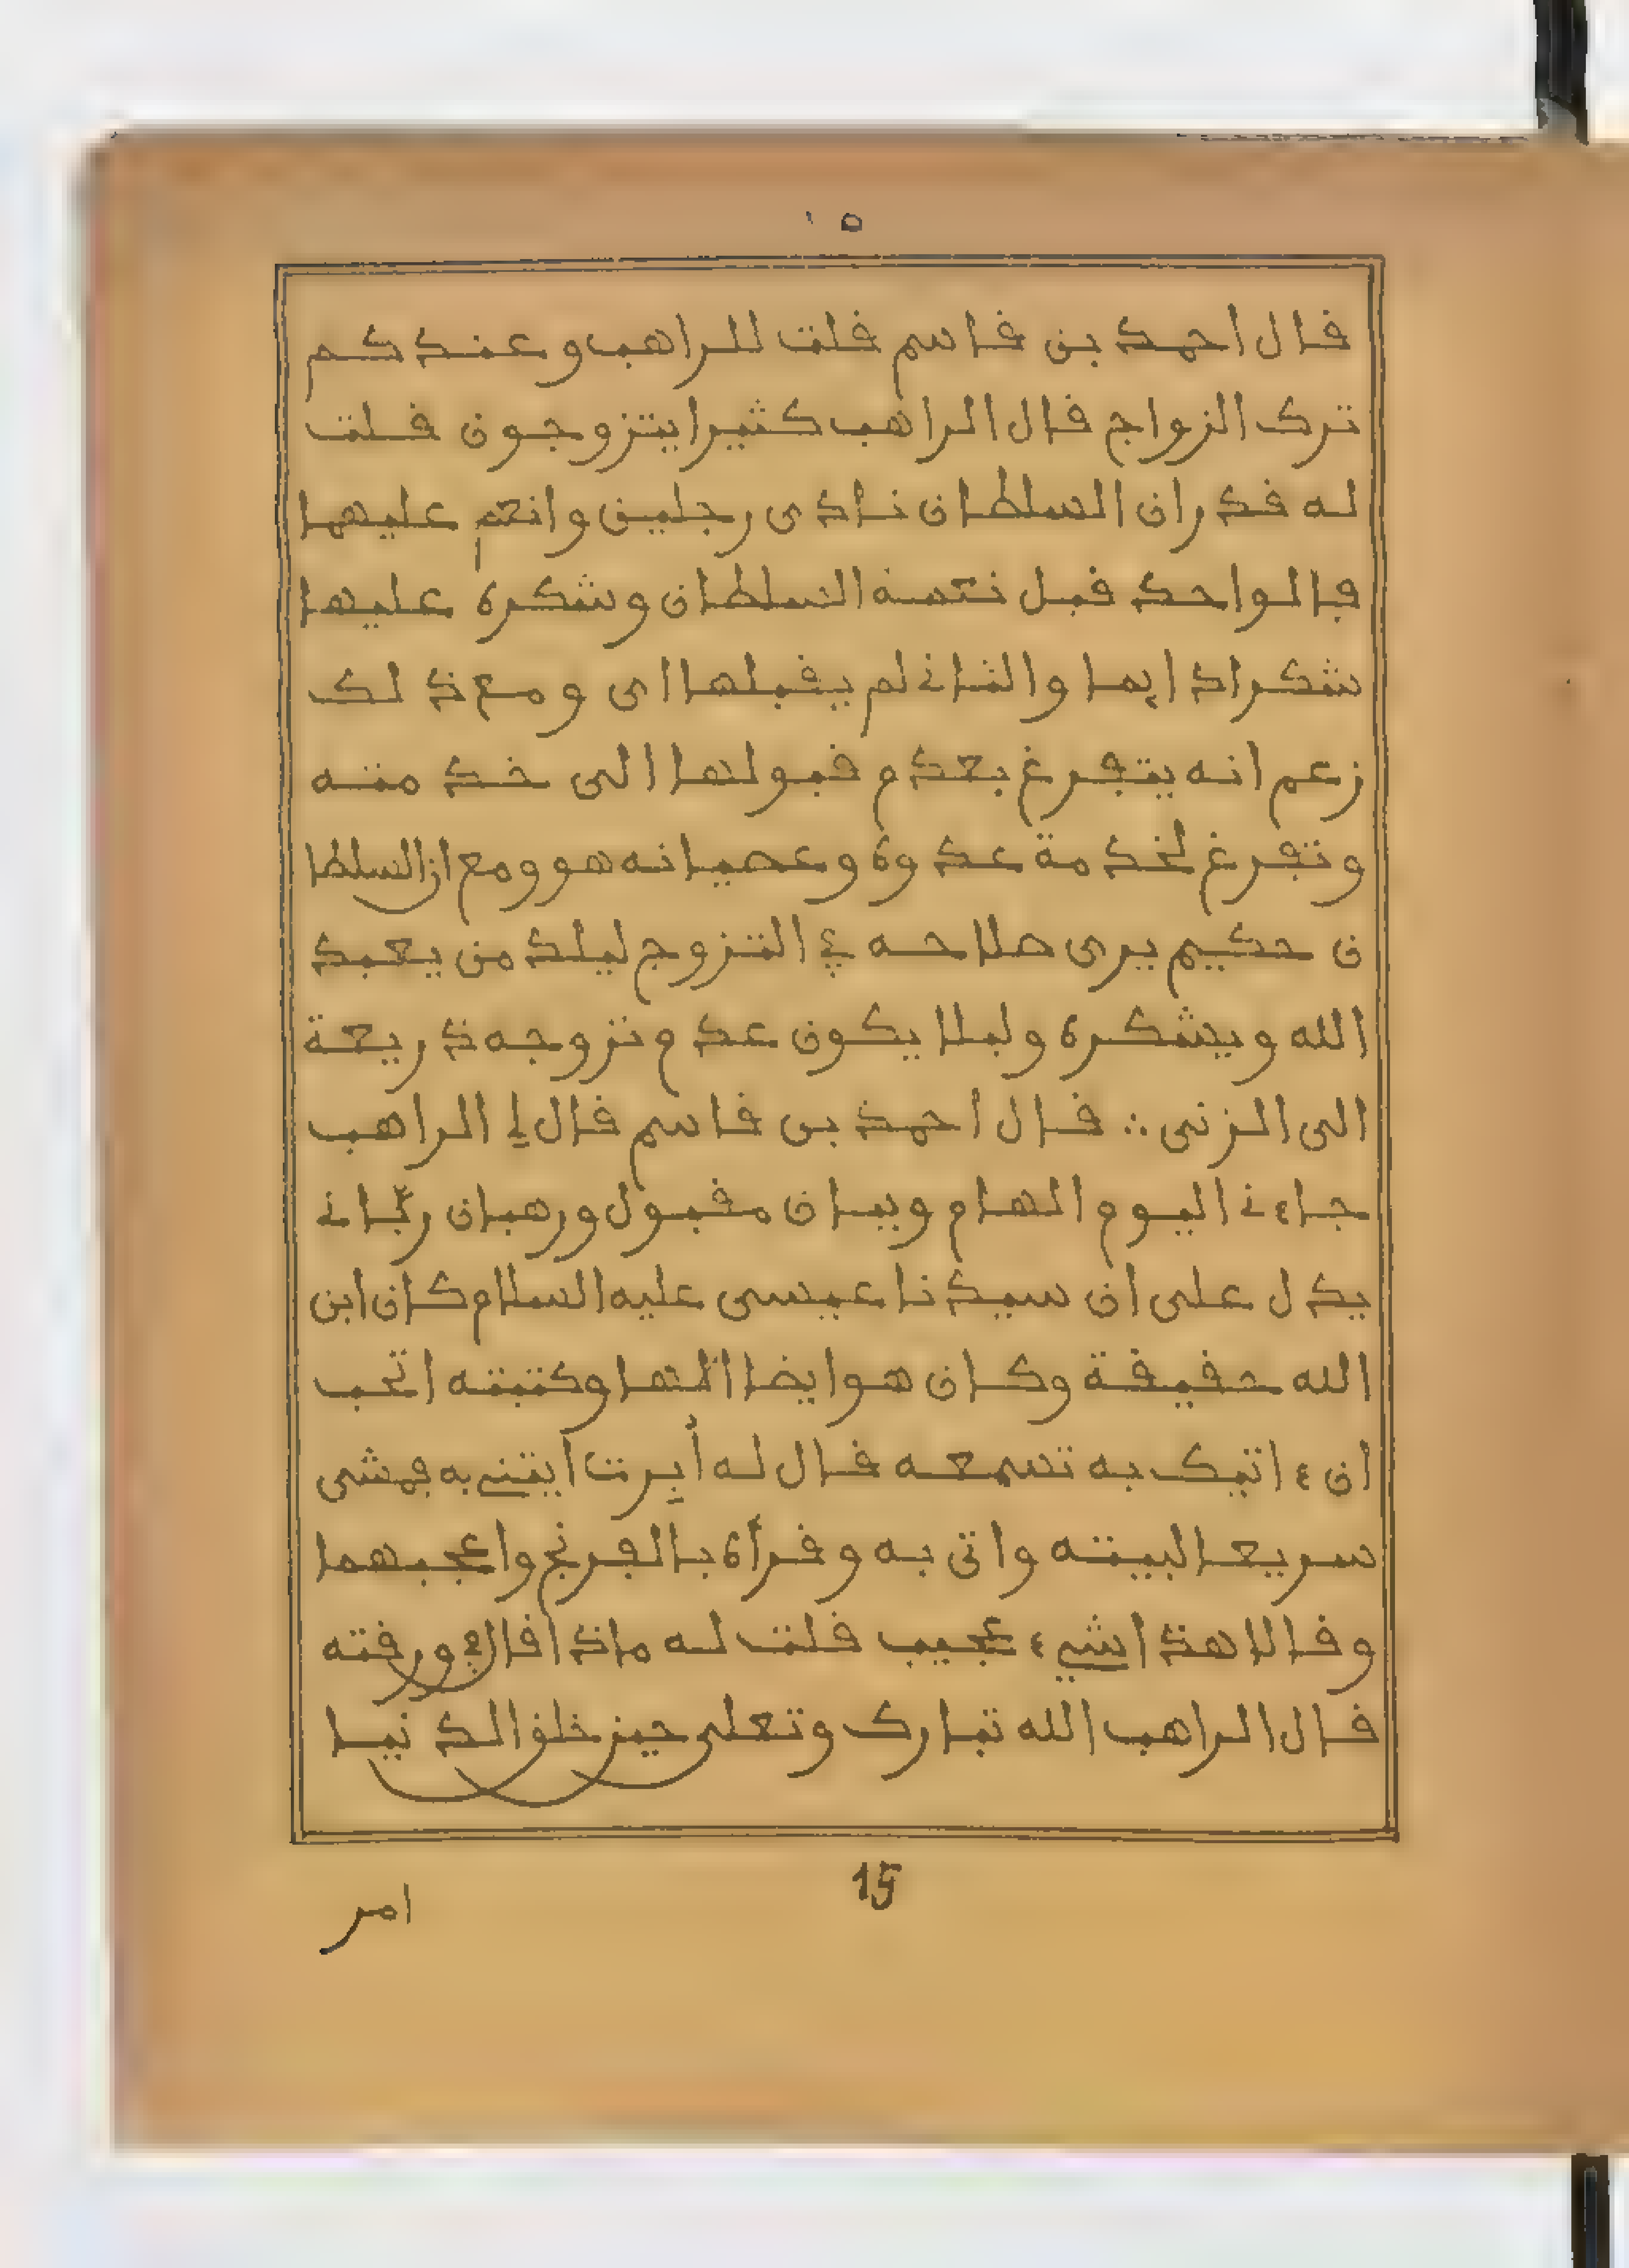 ١٥
قال احمد بن قاسم قلت للراهب وعندكم
ترك الزواج قال الراهب كثير ايتزوجون قلت
له قدر ان السلطان نادى رجلين وانعم عليهما
فالواحد قبل نعمة السلطان وشكره عليها
شكرا دايما والثاني لم يقبلها اى ومع ذلك
زعم انه يتفرغ بعدم قبولها الى خدمته
وتفرغ لخدمة عدوه وعصيانه هو ومع ان السلطا
ن حكيم يرى صلاحه في التزوج ليلد من يعبد
الله ويشكره وليلا يكون عدم تزوجه ذريعة
الى الزنى ∴ قال احمد بن قاسم قال لي الراهب
جاءني اليوم الهام وبيان مقبول ورهبان ربّاني
يدل على ان سيدنا عيسى عليه السلام كان ابن
الله حقيقة وكان هو ايضا الها وكتبته اتحب
ان ءاتيك به تسمعه قال له أبرت ايتني به فمشى
سريعا لبيته واتى به وقرأه بالفرنج واعجبهما
وقالا هذا شيء عجيب قلت له ماذا قال في ورقته
قال الراهب الله تبارك وتعلى حين خلق الدنيا
15
امر